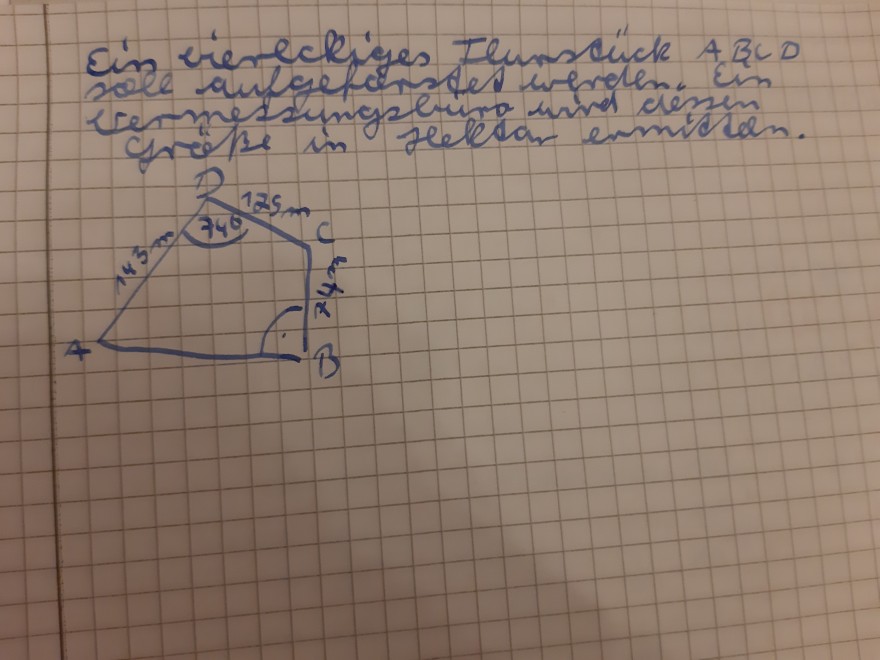 Ein viereckiges Flurstück ABCD
soll aufgeforstet werden. Ein
Vermessungsbüro wird dessen
Größe in Hektar ermitteln.
D
125 m
74°
C
143 m
74 m
A
B